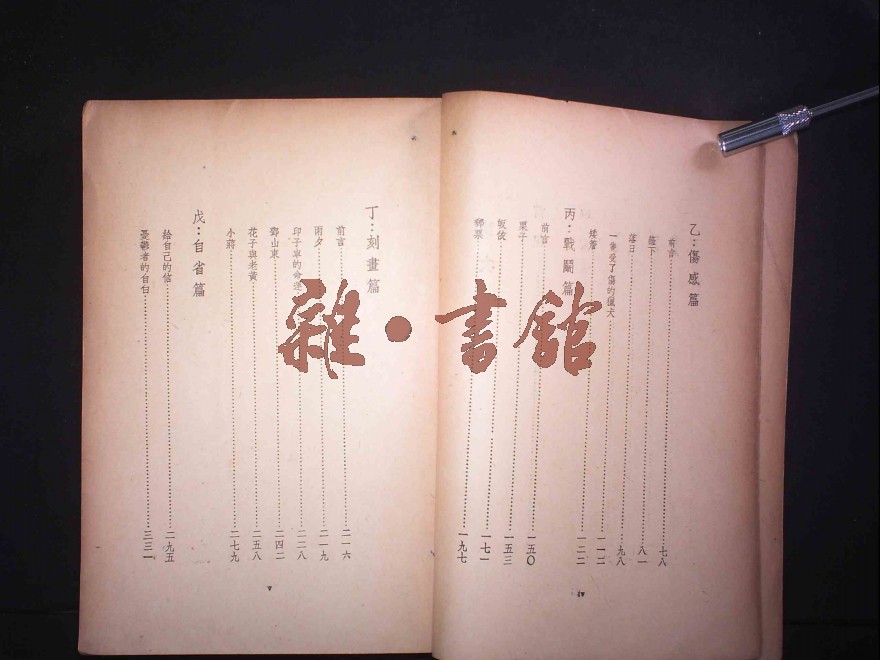 乙：傷感篇
前言……七八
落日……九八
一隻受了傷的獵犬……一一二
丙：戰鬭篇
前言……一五〇
栗子……一五三
iv
丁：刻畫篇
前言……二一六
雨夕……二一九
印子車的命運……二二八
鄧山東……二四二
花子與老黃……二五八
小蔣……二七九
戊：自省篇
給自己的信……二九五
憂鬱者的自白……三三一
v
雜·書館